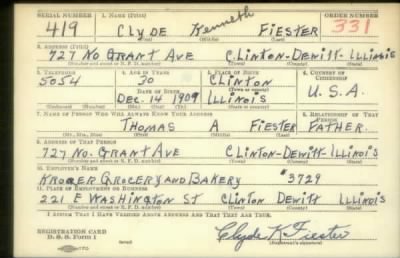 SERIAL NUMBER 1. NAME (Print) ORDER NUMBER
419 Clyde Kenneth Fiester 331
(First) (Middle) (Last)
2. ADDRESS (Print)
727 No GRANT AVE CLINTON-DEWITT-ILLINOIS
(Number and street or R. F. D. number) (Town) (County) (State)
3. TELEPHONE 4. AGE IN YEARS 5. PLACE OF BIRTH 6. COUNTRY OF CITIZENSHIP
5054 30 CLINTON
DATE OF BIRTH (Town or county)
DEC. 14 1909 ILLINOIS U.S.A.
(Mo.) (Day) (Yr.) (State or country)
7. NAME OF PERSON WHO WILL ALWAYS KNOW YOUR ADDRESS 8. RELATIONSHIP OF THAT PERSON
THOMAS A FIESTER FATHER.
(Mr., Mrs., Miss) (First) (Middle) (Last)
9. ADDRESS OF THAT PERSON
727 No. GRANT AVE CLINTON-DEWITT-ILLINOIS
(Number and street or R. F. D. number) (Town) (County) (State)
10. EMPLOYER'S NAME
KROGER GROCERY AND BAKERY #3729
11. PLACE OF EMPLOYMENT OR BUSINESS
221 E WASHINGTON ST CLINTON DEWITT ILLINOIS
(Number and street or R. F. D. number) (Town) (County) (State)
I AFFIRM THAT I HAVE VERIFIED ABOVE ANSWERS AND THAT THEY ARE TRUE.
REGISTRATION CARD
D. S. S. Form 1 (over) Clyde K. Fiester
(Registrant's signature)